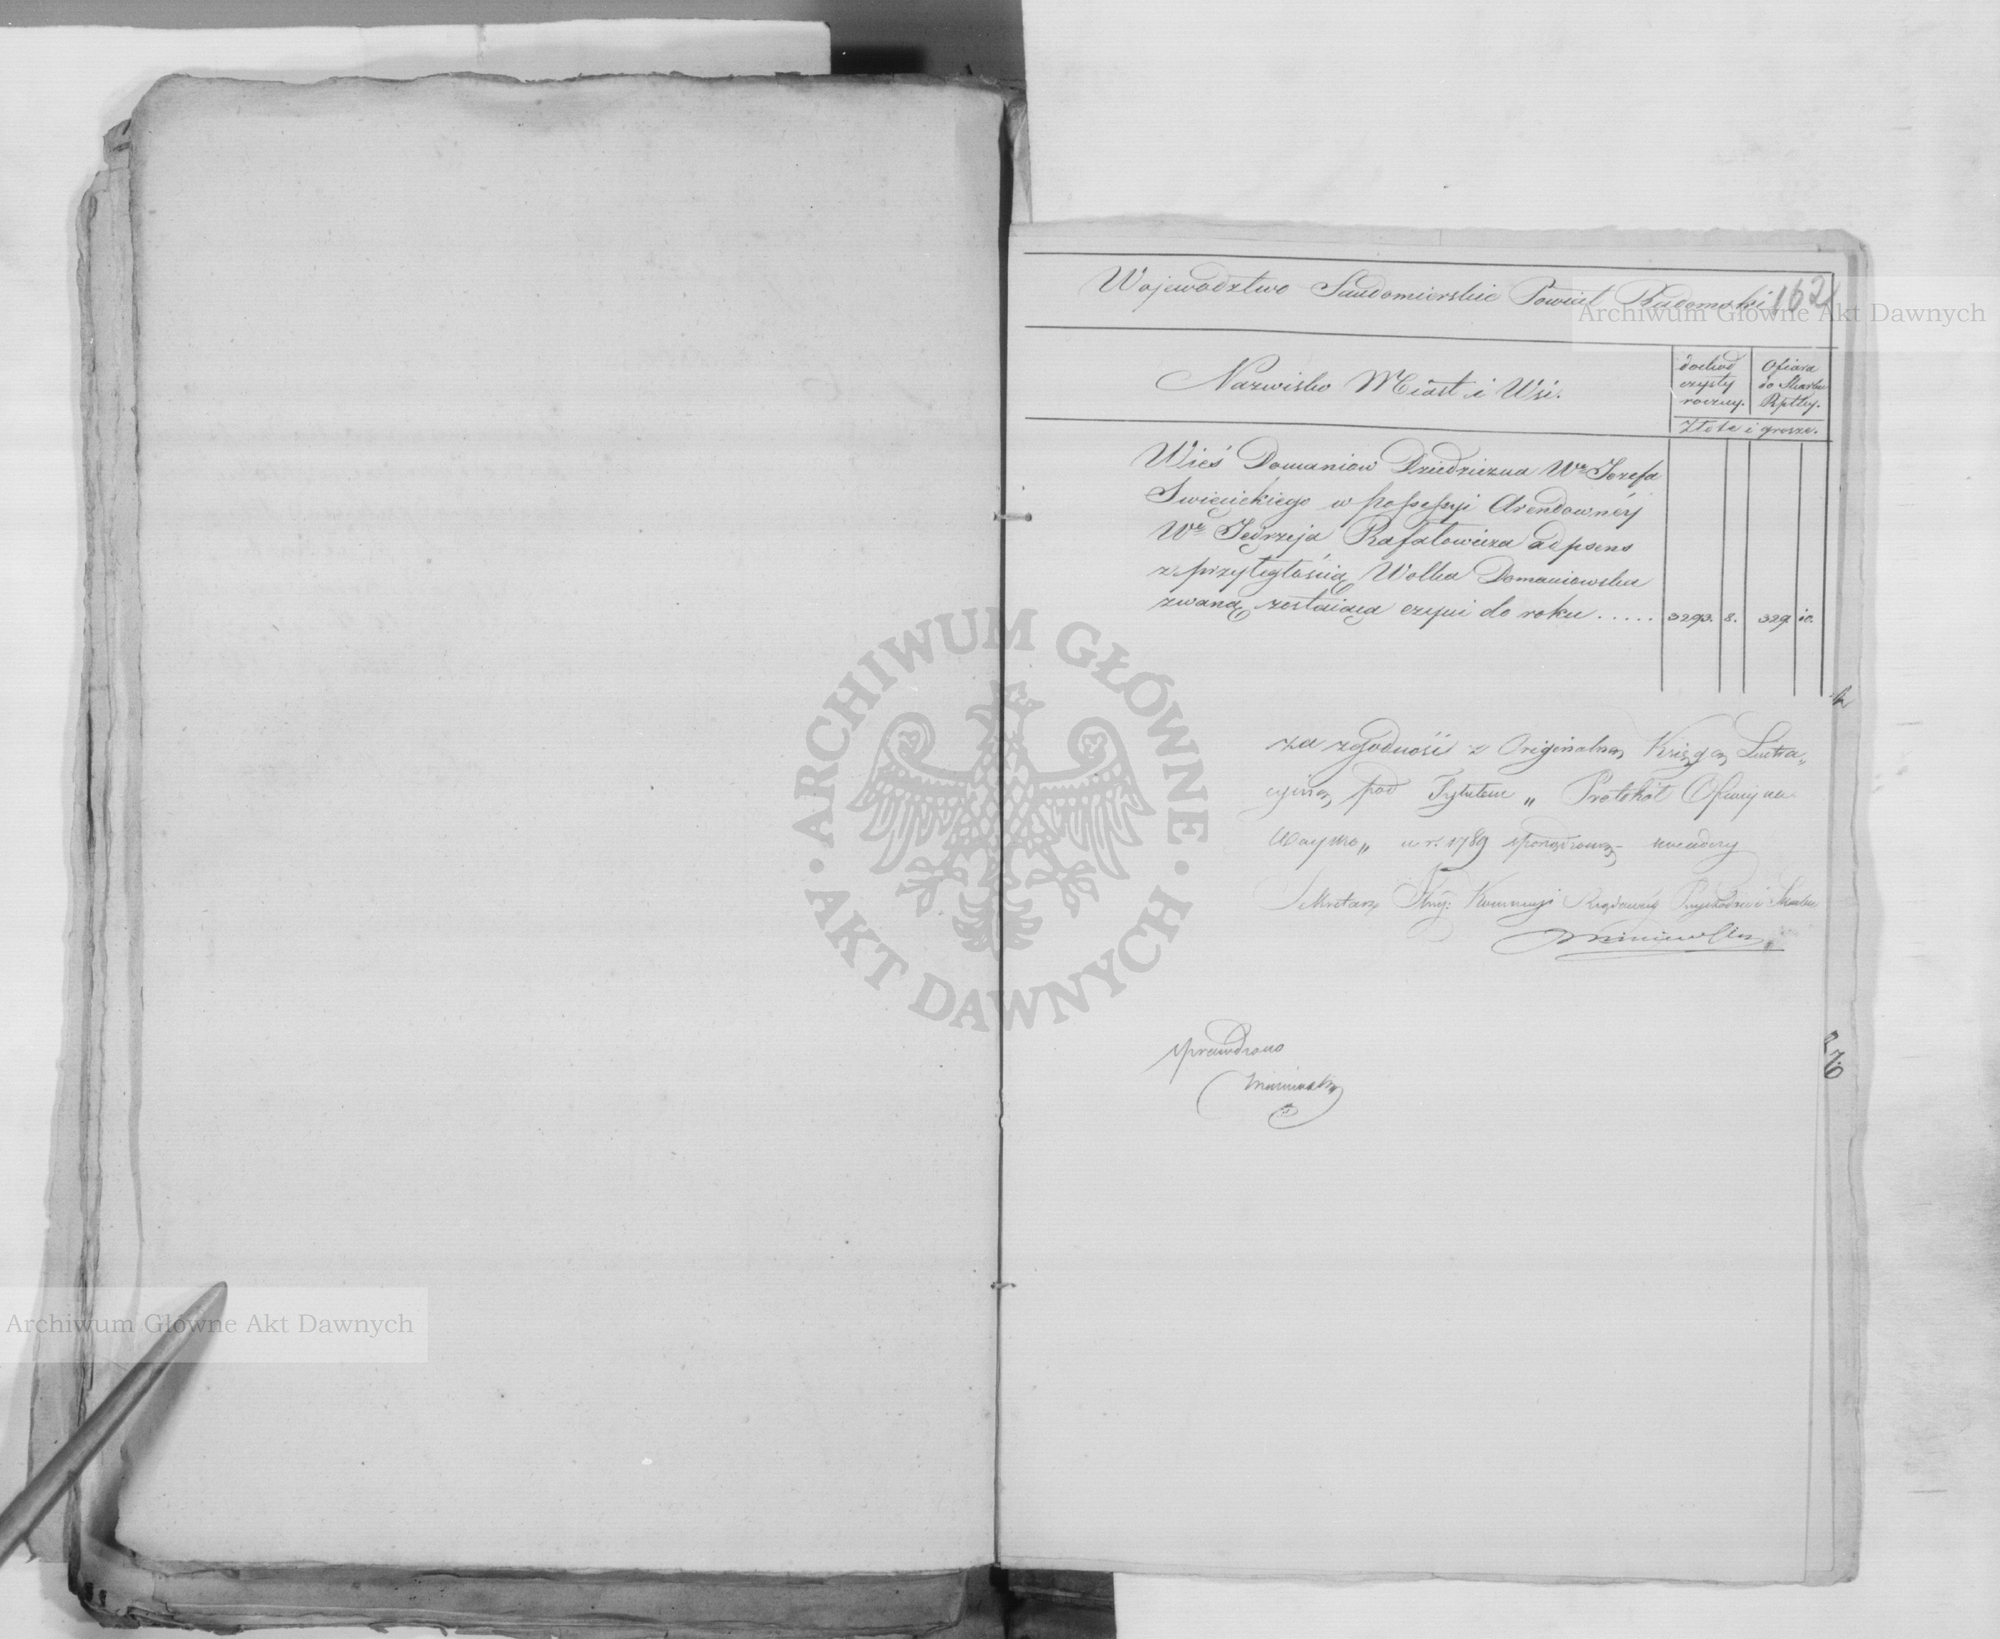 Województwo Sandomierskie Powiat Radomski 162
Archiwum Główne Akt Dawnych
Nazwisko Miast i Wsi.
dochód czysty roczny.
Ofiara do Skarbu Rpltey.
Złote i grosze.
Wieś Domaniow Dziedziczna Wo Jozefa
Swięcickiego w possessyi Arendowney
Wo Jędrzeja Rafałowicza ad psens
z przyległością Wolka Domaniowska
zwaną zostaiąca czyni do roku ..... 3293. 8. 329. 10.
Za zgodność z Originalną Księgą Lustra„
cyiną pod Tytułem „ Protokół Ofiary na
Woysko„ w r. 1789 sporządzoną
Sekretarz Komissyi Rządowéy Przychodów i Skarbu
Sprawdzono
ARCHIWUM GŁÓWNE
· AKT DAWNYCH ·
Archiwum Główne Akt Dawnych